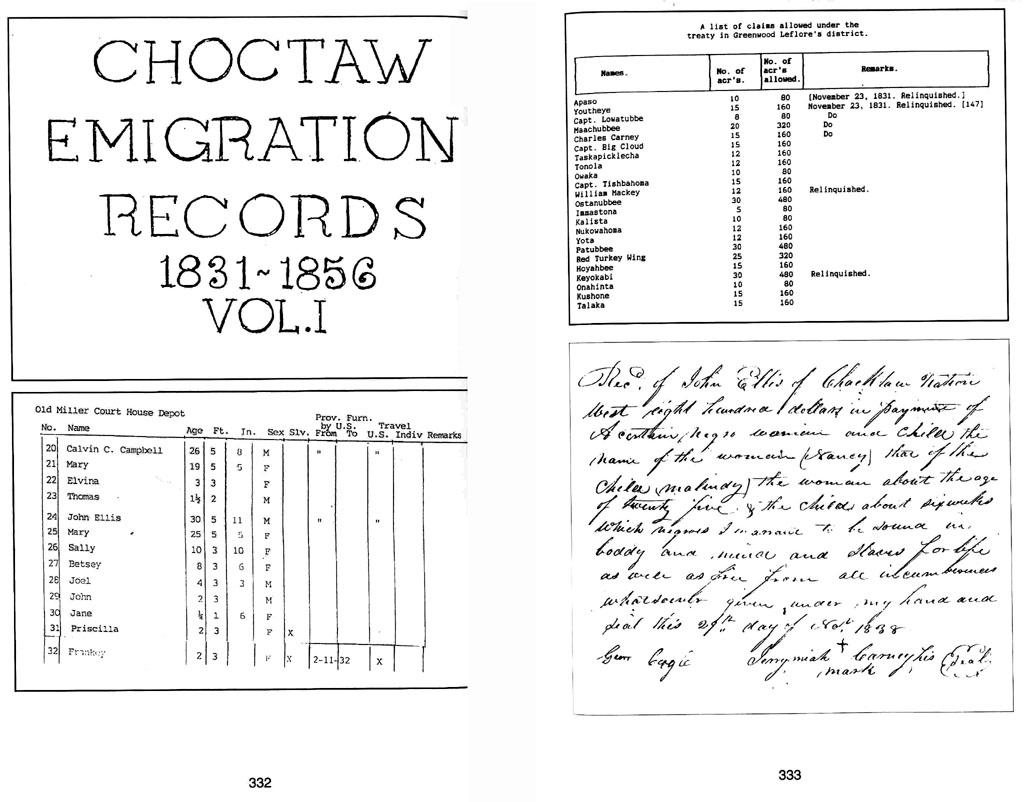 CHOCTAW
EMIGRATION
RECORDS
1831~1856
VOL.I
Old Miller Court House Depot
Prov. Furn.
by U.S. Travel
No. Name Age Ft. In. Sex Slv. From To U.S. Indiv Remarks
20 Calvin C. Campbell 26 5 8 M " "
21 Mary 19 5 5 F
22 Elvina 3 3 F
23 Thomas 1½ 2 M
24 John Ellis 30 5 11 M " "
25 Mary 25 5 5 F
26 Sally 10 3 10 F
27 Betsey 8 3 6 F
28 Joel 4 3 3 M
29 John 2 3 M
30 Jane 1 6 F
31 Priscilla 2 3 F X
32 Frankey 2 3 F X 2-11-32 X
332
A list of claims allowed under the
treaty in Greenwood Leflore's district.
Names. No. of acr's. No. of acr's allowed. Remarks.
Apaso 10 80 [November 23, 1831. Relinquished.]
Youtheye 15 160 November 23, 1831. Relinquished. [147]
Capt. Lowatubbe 8 80 Do
Maachubbee 20 320 Do
Charles Carney 15 160 Do
Capt. Big Cloud 15 160
Taskapicklecha 12 160
Tonola 12 160
Owaka 10 80
Capt. Tishbahoma 15 160
William Mackey 12 160 Relinquished.
Ostanubbee 30 480
Immastona 5 80
Kalista 10 80
Nukowahoma 12 160
Yota 12 160
Patubbee 30 480
Red Turkey Wing 25 320
Hoyahbee 15 160
Keyokabi 30 480 Relinquished.
Onahinta 10 80
Kushone 15 160
Talaka 15 160
Recd. of John Ellis of Chacktaw Nation
West eight hundred dollars in payment of
A certain Negro woman and Child the
name of the woman (Nancy) that of the
Child (malindy) the woman about the age
of twenty five & the child about six weeks
Which negroes I warrant to be sound in
boddy and mind and Slaves for life
as well as free from all incumberences
whatsoever given under my hand and
seal this 29th day of Novt. 1838
Jerrymiah + Carney his Seal
mark
333